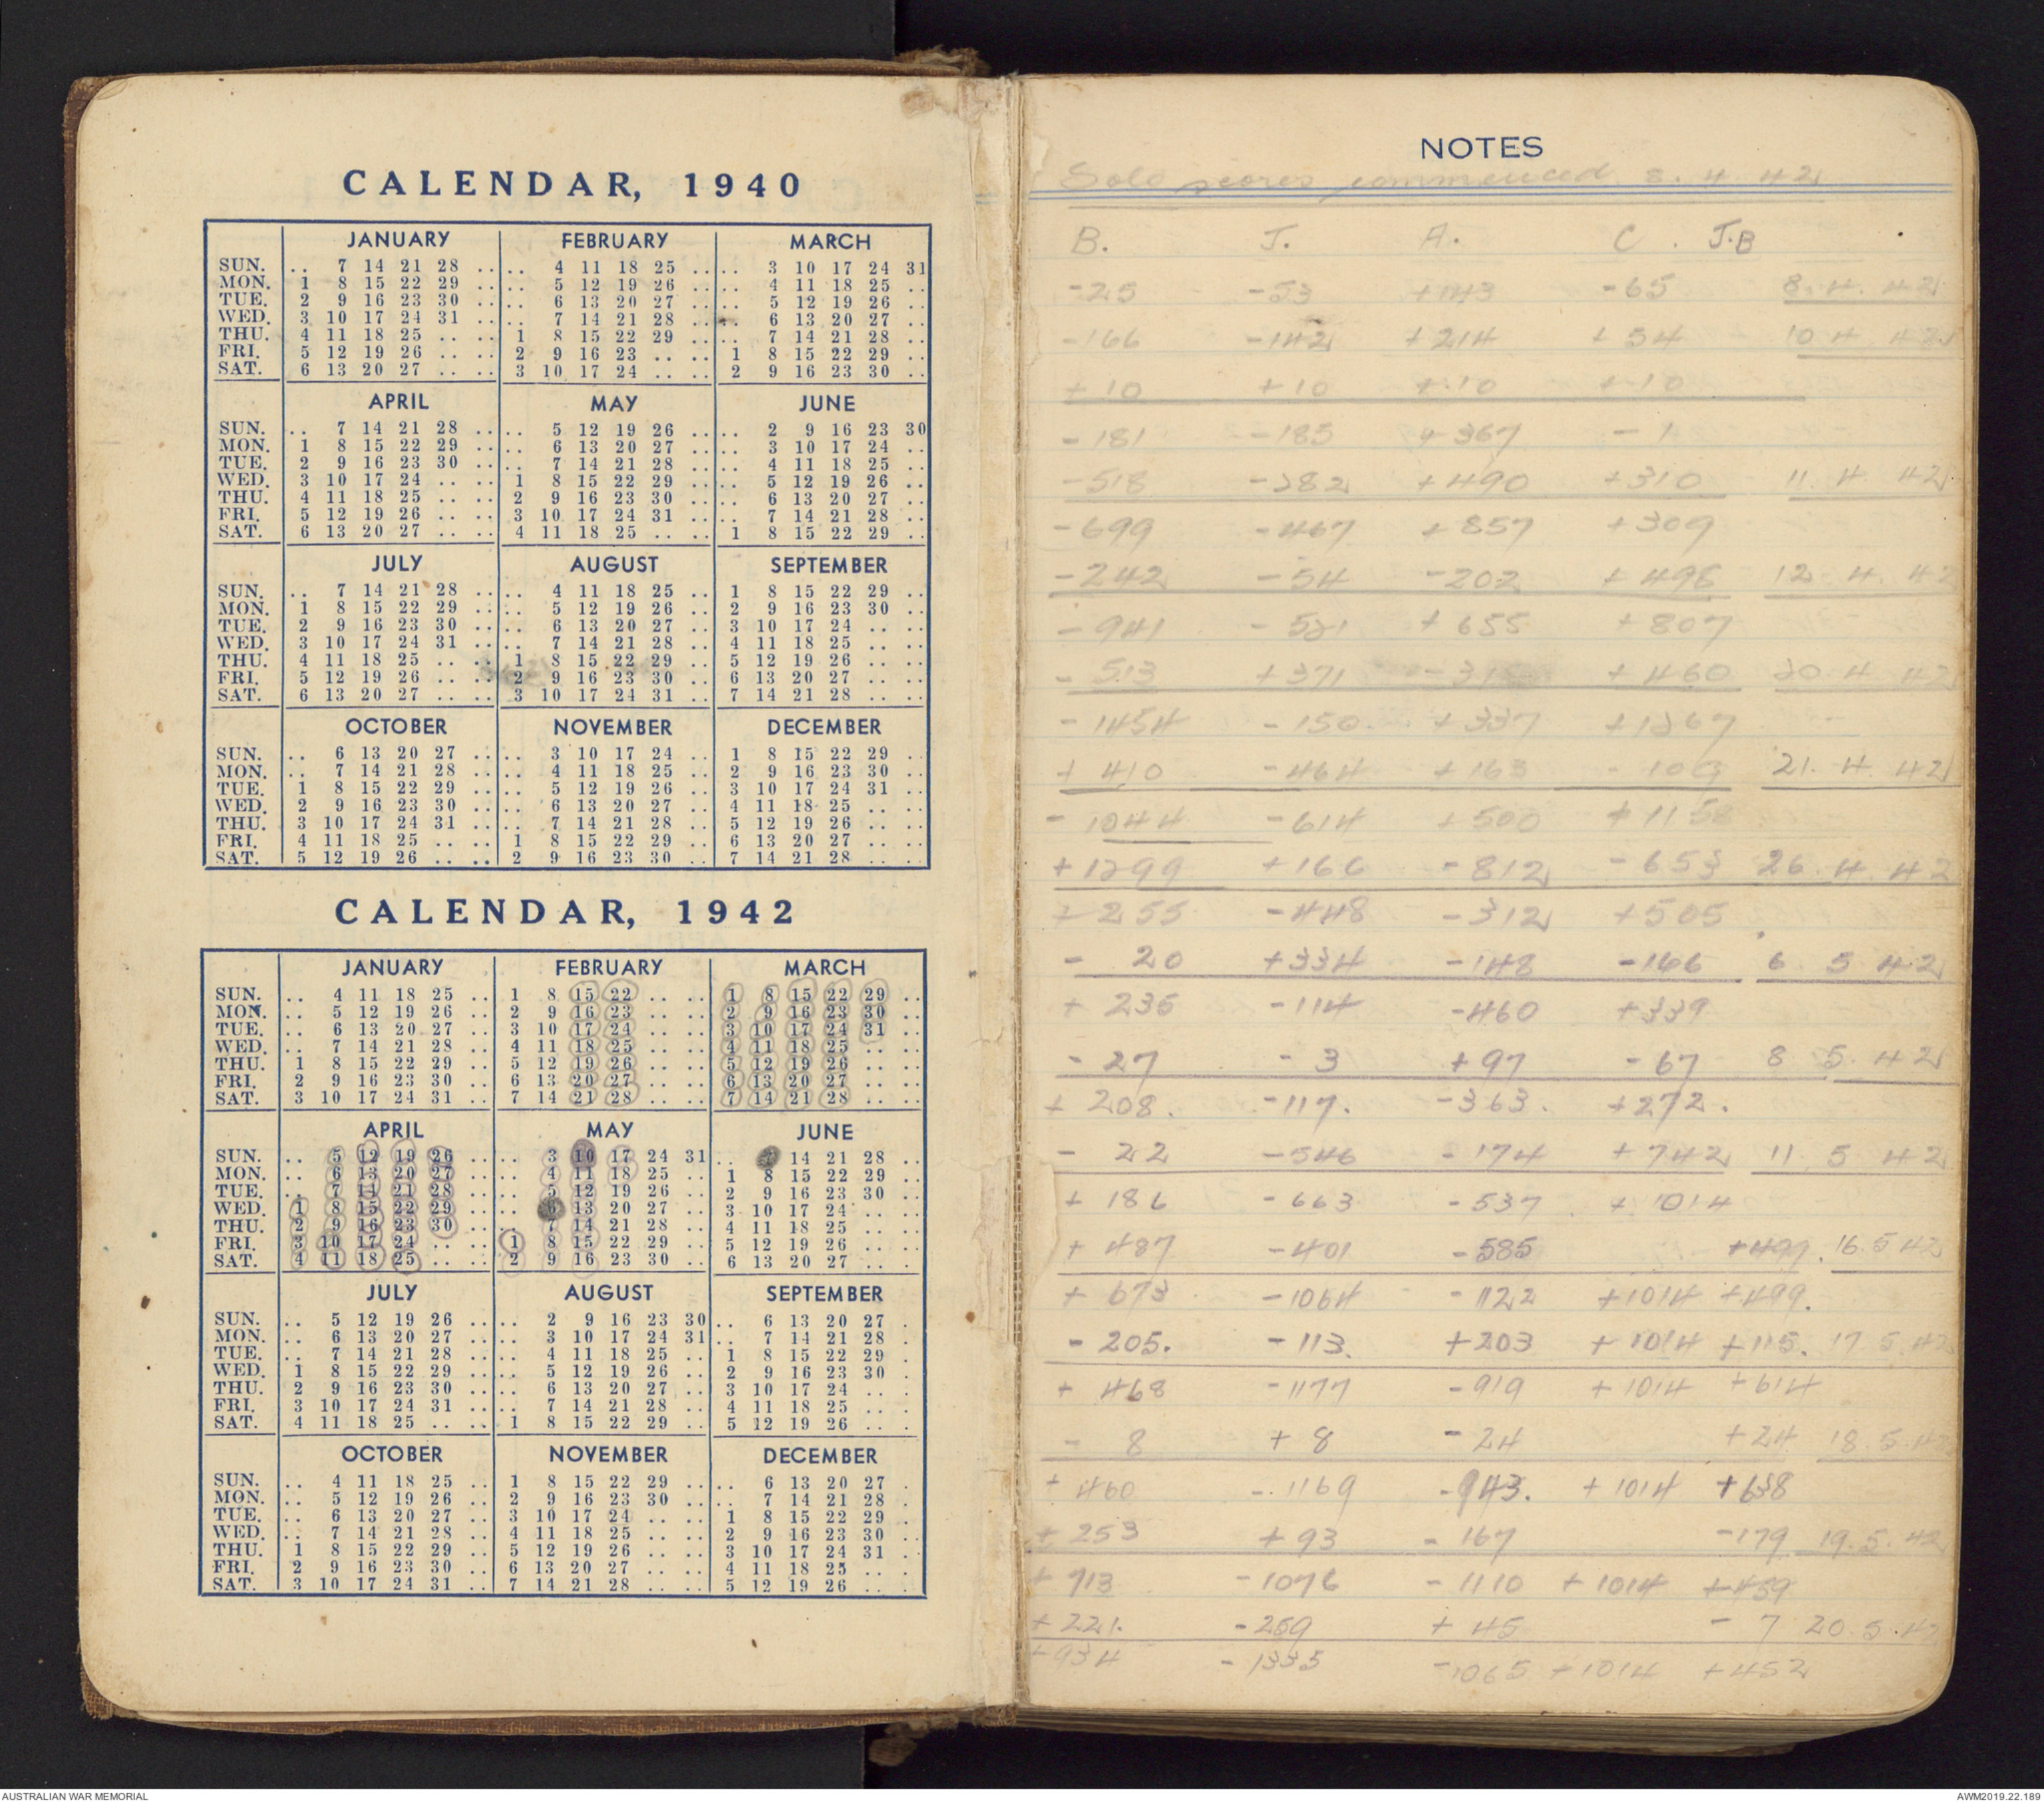 CALENDAR, 1940
JANUARY FEBRUARY MARCH
SUN. .. 7 14 21 28 .. .. 4 11 18 25 .. .. 3 10 17 24 31
MON. 1 8 15 22 29 .. .. 5 12 19 26 .. .. 4 11 18 25 ..
TUE. 2 9 16 23 30 .. .. 6 13 20 27 .. .. 5 12 19 26 ..
WED. 3 10 17 24 31 .. .. 7 14 21 28 .. .. 6 13 20 27 ..
THU. 4 11 18 25 .. .. 1 8 15 22 29 .. .. 7 14 21 28 ..
FRI. 5 12 19 26 .. .. 2 9 16 23 .. .. 1 8 15 22 29 ..
SAT. 6 13 20 27 .. .. 3 10 17 24 .. .. 2 9 16 23 30 ..
APRIL MAY JUNE
SUN. .. 7 14 21 28 .. .. 5 12 19 26 .. .. 2 9 16 23 30
MON. 1 8 15 22 29 .. .. 6 13 20 27 .. .. 3 10 17 24 ..
TUE. 2 9 16 23 30 .. .. 7 14 21 28 .. .. 4 11 18 25 ..
WED. 3 10 17 24 .. .. 1 8 15 22 29 .. .. 5 12 19 26 ..
THU. 4 11 18 25 .. .. 2 9 16 23 30 .. .. 6 13 20 27 ..
FRI. 5 12 19 26 .. .. 3 10 17 24 31 .. .. 7 14 21 28 ..
SAT. 6 13 20 27 .. .. 4 11 18 25 .. .. 1 8 15 22 29 ..
JULY AUGUST SEPTEMBER
SUN. .. 7 14 21 28 .. .. 4 11 18 25 .. 1 8 15 22 29 ..
MON. 1 8 15 22 29 .. .. 5 12 19 26 .. 2 9 16 23 30 ..
TUE. 2 9 16 23 30 .. .. 6 13 20 27 .. 3 10 17 24 .. ..
WED. 3 10 17 24 31 .. .. 7 14 21 28 .. 4 11 18 25 .. ..
THU. 4 11 18 25 .. .. 1 8 15 22 29 .. 5 12 19 26 .. ..
FRI. 5 12 19 26 .. .. 2 9 16 23 30 .. 6 13 20 27 .. ..
SAT. 6 13 20 27 .. .. 3 10 17 24 31 .. 7 14 21 28 .. ..
OCTOBER NOVEMBER DECEMBER
SUN. .. 6 13 20 27 .. .. 3 10 17 24 .. 1 8 15 22 29 ..
MON. .. 7 14 21 28 .. .. 4 11 18 25 .. 2 9 16 23 30 ..
TUE. 1 8 15 22 29 .. .. 5 12 19 26 .. 3 10 17 24 31 ..
WED. 2 9 16 23 30 .. .. 6 13 20 27 .. 4 11 18 25 .. ..
THU. 3 10 17 24 31 .. .. 7 14 21 28 .. 5 12 19 26 .. ..
FRI. 4 11 18 25 .. .. 1 8 15 22 29 .. 6 13 20 27 .. ..
SAT. 5 12 19 26 .. .. 2 9 16 23 30 .. 7 14 21 28 .. ..
CALENDAR, 1942
JANUARY FEBRUARY MARCH
SUN. .. 4 11 18 25 .. 1 8 15 22 .. .. 1 8 15 22 29 ..
MON. .. 5 12 19 26 .. 2 9 16 23 .. .. 2 9 16 23 30 ..
TUE. .. 6 13 20 27 .. 3 10 17 24 .. .. 3 10 17 24 31 ..
WED. .. 7 14 21 28 .. 4 11 18 25 .. .. 4 11 18 25 .. ..
THU. 1 8 15 22 29 .. 5 12 19 26 .. .. 5 12 19 26 .. ..
FRI. 2 9 16 23 30 .. 6 13 20 27 .. .. 6 13 20 27 .. ..
SAT. 3 10 17 24 31 .. 7 14 21 28 .. .. 7 14 21 28 .. ..
APRIL MAY JUNE
SUN. .. 5 12 19 26 .. .. 3 10 17 24 31 .. 14 21 28 ..
MON. .. 6 13 20 27 .. .. 4 11 18 25 .. 1 8 15 22 29 ..
TUE. .. 7 14 21 28 .. .. 5 12 19 26 .. 2 9 16 23 30 ..
WED. 1 8 15 22 29 .. .. 6 13 20 27 .. 3 10 17 24 .. ..
THU. 2 9 16 23 30 .. .. 7 14 21 28 .. 4 11 18 25 .. ..
FRI. 3 10 17 24 .. .. 1 8 15 22 29 .. 5 12 19 26 .. ..
SAT. 4 11 18 25 .. .. 2 9 16 23 30 .. 6 13 20 27 .. .
JULY AUGUST SEPTEMBER
SUN. .. 5 12 19 26 .. .. 2 9 16 23 30 .. 6 13 20 27 .
MON. .. 6 13 20 27 .. .. 3 10 17 24 31 .. 7 14 21 28 .
TUE. .. 7 14 21 28 .. .. 4 11 18 25 .. 1 8 15 22 29 .
WED. 1 8 15 22 29 .. .. 5 12 19 26 .. 2 9 16 23 30 .
THU. 2 9 16 23 30 .. .. 6 13 20 27 .. 3 10 17 24 .. .
FRI. 3 10 17 24 31 .. .. 7 14 21 28 .. 4 11 18 25 .. .
SAT. 4 11 18 25 .. .. 1 8 15 22 29 .. 5 12 19 26 .. .
OCTOBER NOVEMBER DECEMBER
SUN. .. 4 11 18 25 .. 1 8 15 22 29 .. .. 6 13 20 27 .
MON. .. 5 12 19 26 .. 2 9 16 23 30 .. .. 7 14 21 28 .
TUE. .. 6 13 20 27 .. 3 10 17 24 .. .. 1 8 15 22 29 .
WED. .. 7 14 21 28 .. 4 11 18 25 .. .. 2 9 16 23 30 .
THU. 1 8 15 22 29 .. 5 12 19 26 .. .. 3 10 17 24 31 .
FRI. 2 9 16 23 30 .. 6 13 20 27 .. .. 4 11 18 25 .. .
SAT. 3 10 17 24 31 .. 7 14 21 28 .. .. 5 12 19 26 .. .
NOTES
Solo scores commenced 8. 4. 42
B. J. A. C. J.B
-25 -53 +143 -65 8. 4. 42
-166 -142 +214 +54 10 4. 42
+10 +10 +10 +10
-181 -185 +367 -1
-518 -282 +490 +310 11. 4. 42
-699 -467 +857 +309
-242 -54 -202 +498 12. 4. 42
-941 -521 +655 +807
-513 +371 +460 20 4 42
-1454 -150. +337 +1267
+410 -464 +163 -109 21. 4. 42
-1044 -614 +500 +1158
+1299 +166 -812 -653 26. 4. 42
+255 -448 -312 +505
- 20 +334 -148 -166 6 5 42
+ 235 -114 -460 +339
- 27 - 3 +97 - 67 8 5. 42
+ 208. -117. -363. +272.
- 22 -546 -174 +742 11. 5 42
+ 186 -663 -537 + 1014
+ 487 -401 -585 +499. 16.5 42
+ 673 -1064 -1122 +1014 +499.
- 205. -113. +203 +1014 +115. 17 5. 42
+ 468 -1177 -919 +1014 +614
- 8 + 8 -24 +24 18.5.42
+ 460 -1169 -943. +1014 +638
+ 253 + 93 - 167 -179 19.5.42
+ 713 -1076 -1110 +1014 +459
+ 221. -259 + 45 - 7 20.5.42
+934 -1335 -1065 +1014 +452
AUSTRALIAN WAR MEMORIAL AWM2019.22.188